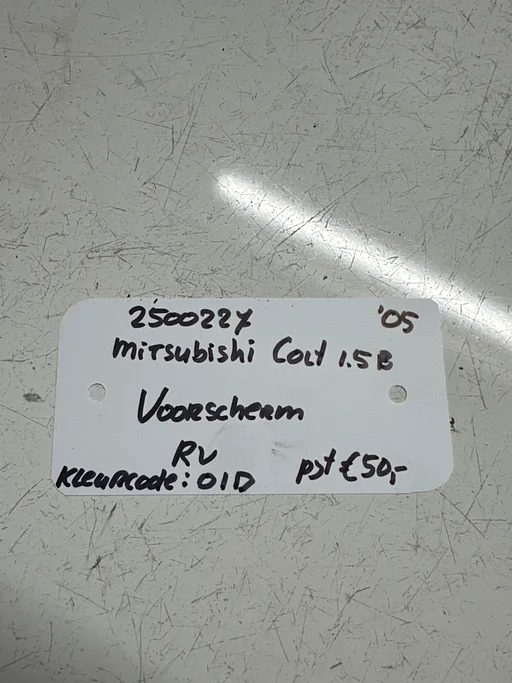 2500227 '05
Mitsubishi Colt 1.5B
Voorscherm
RV
Kleurcode: 01D pst €50,-